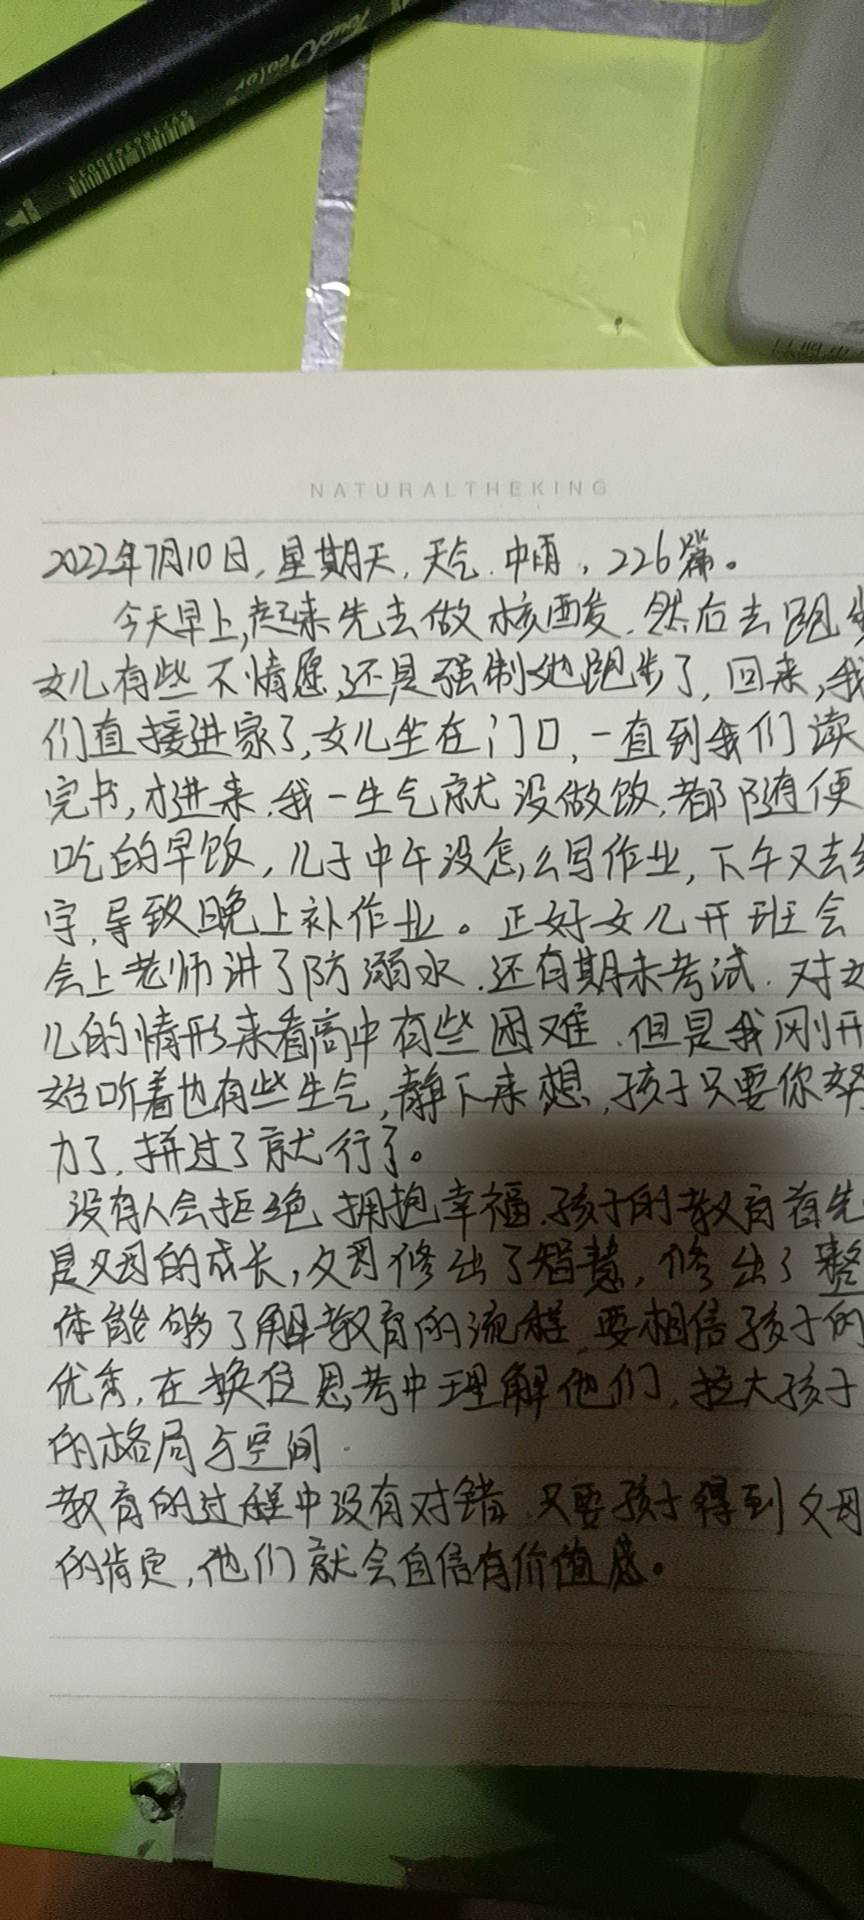 Touch color
NATURALTHEKING
2022年7月10日,星期天,天气.中雨,226篇。
今天早上,起来先去做核酸.然后去跑步
女儿有些不情愿,还是强制她跑步了,回来,我
们直接进家了,女儿坐在门口,一直到我们读
完书,才进来.我一生气就没做饭,都随便
吃的早饭,儿子中午没怎么写作业,下午又去练
字,导致晚上补作业。正好女儿开班会
会上老师讲了防溺水.还有期末考试.对女
儿的情形来看高中有些困难.但是我刚开
始听着也有些生气,静下来想,孩子只要你努
力了,拼过了就行了。
没有人会拒绝拥抱幸福.孩子的教育首先
是父母的成长,父母修出了智慧,修出了整
体能够了解教育的流程,要相信孩子的
优秀,在换位思考中理解他们,拉大孩子
的格局与空间.
教育的过程中没有对错.只要孩子得到父母
的肯定,他们就会自信有价值感。